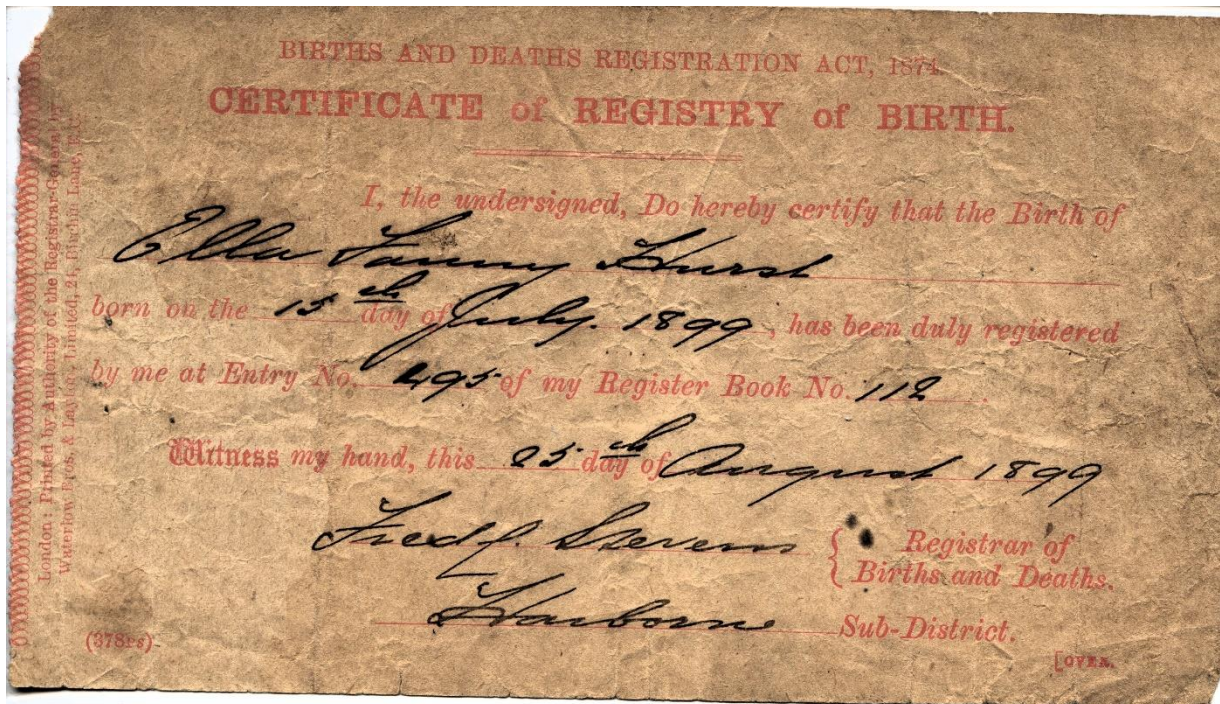 BIRTHS AND DEATHS REGISTRATION ACT, 1874.
CERTIFICATE of REGISTRY of BIRTH.
I, the undersigned, Do hereby certify that the Birth of
Ella Fanny Hurst
born on the 15th day of July. 1899, has been duly registered
by me at Entry No. 495 of my Register Book No. 112.
Witness my hand, this 25th day of August 1899
Fred J. Stevens { Registrar of
Births and Deaths.
Harborne Sub-District.
(378rs)
[OVER.
London: Printed by Authority of the Registrar-General by
Waterlow Bros. & Layton, Limited, 24, Birchin Lane, E.C.